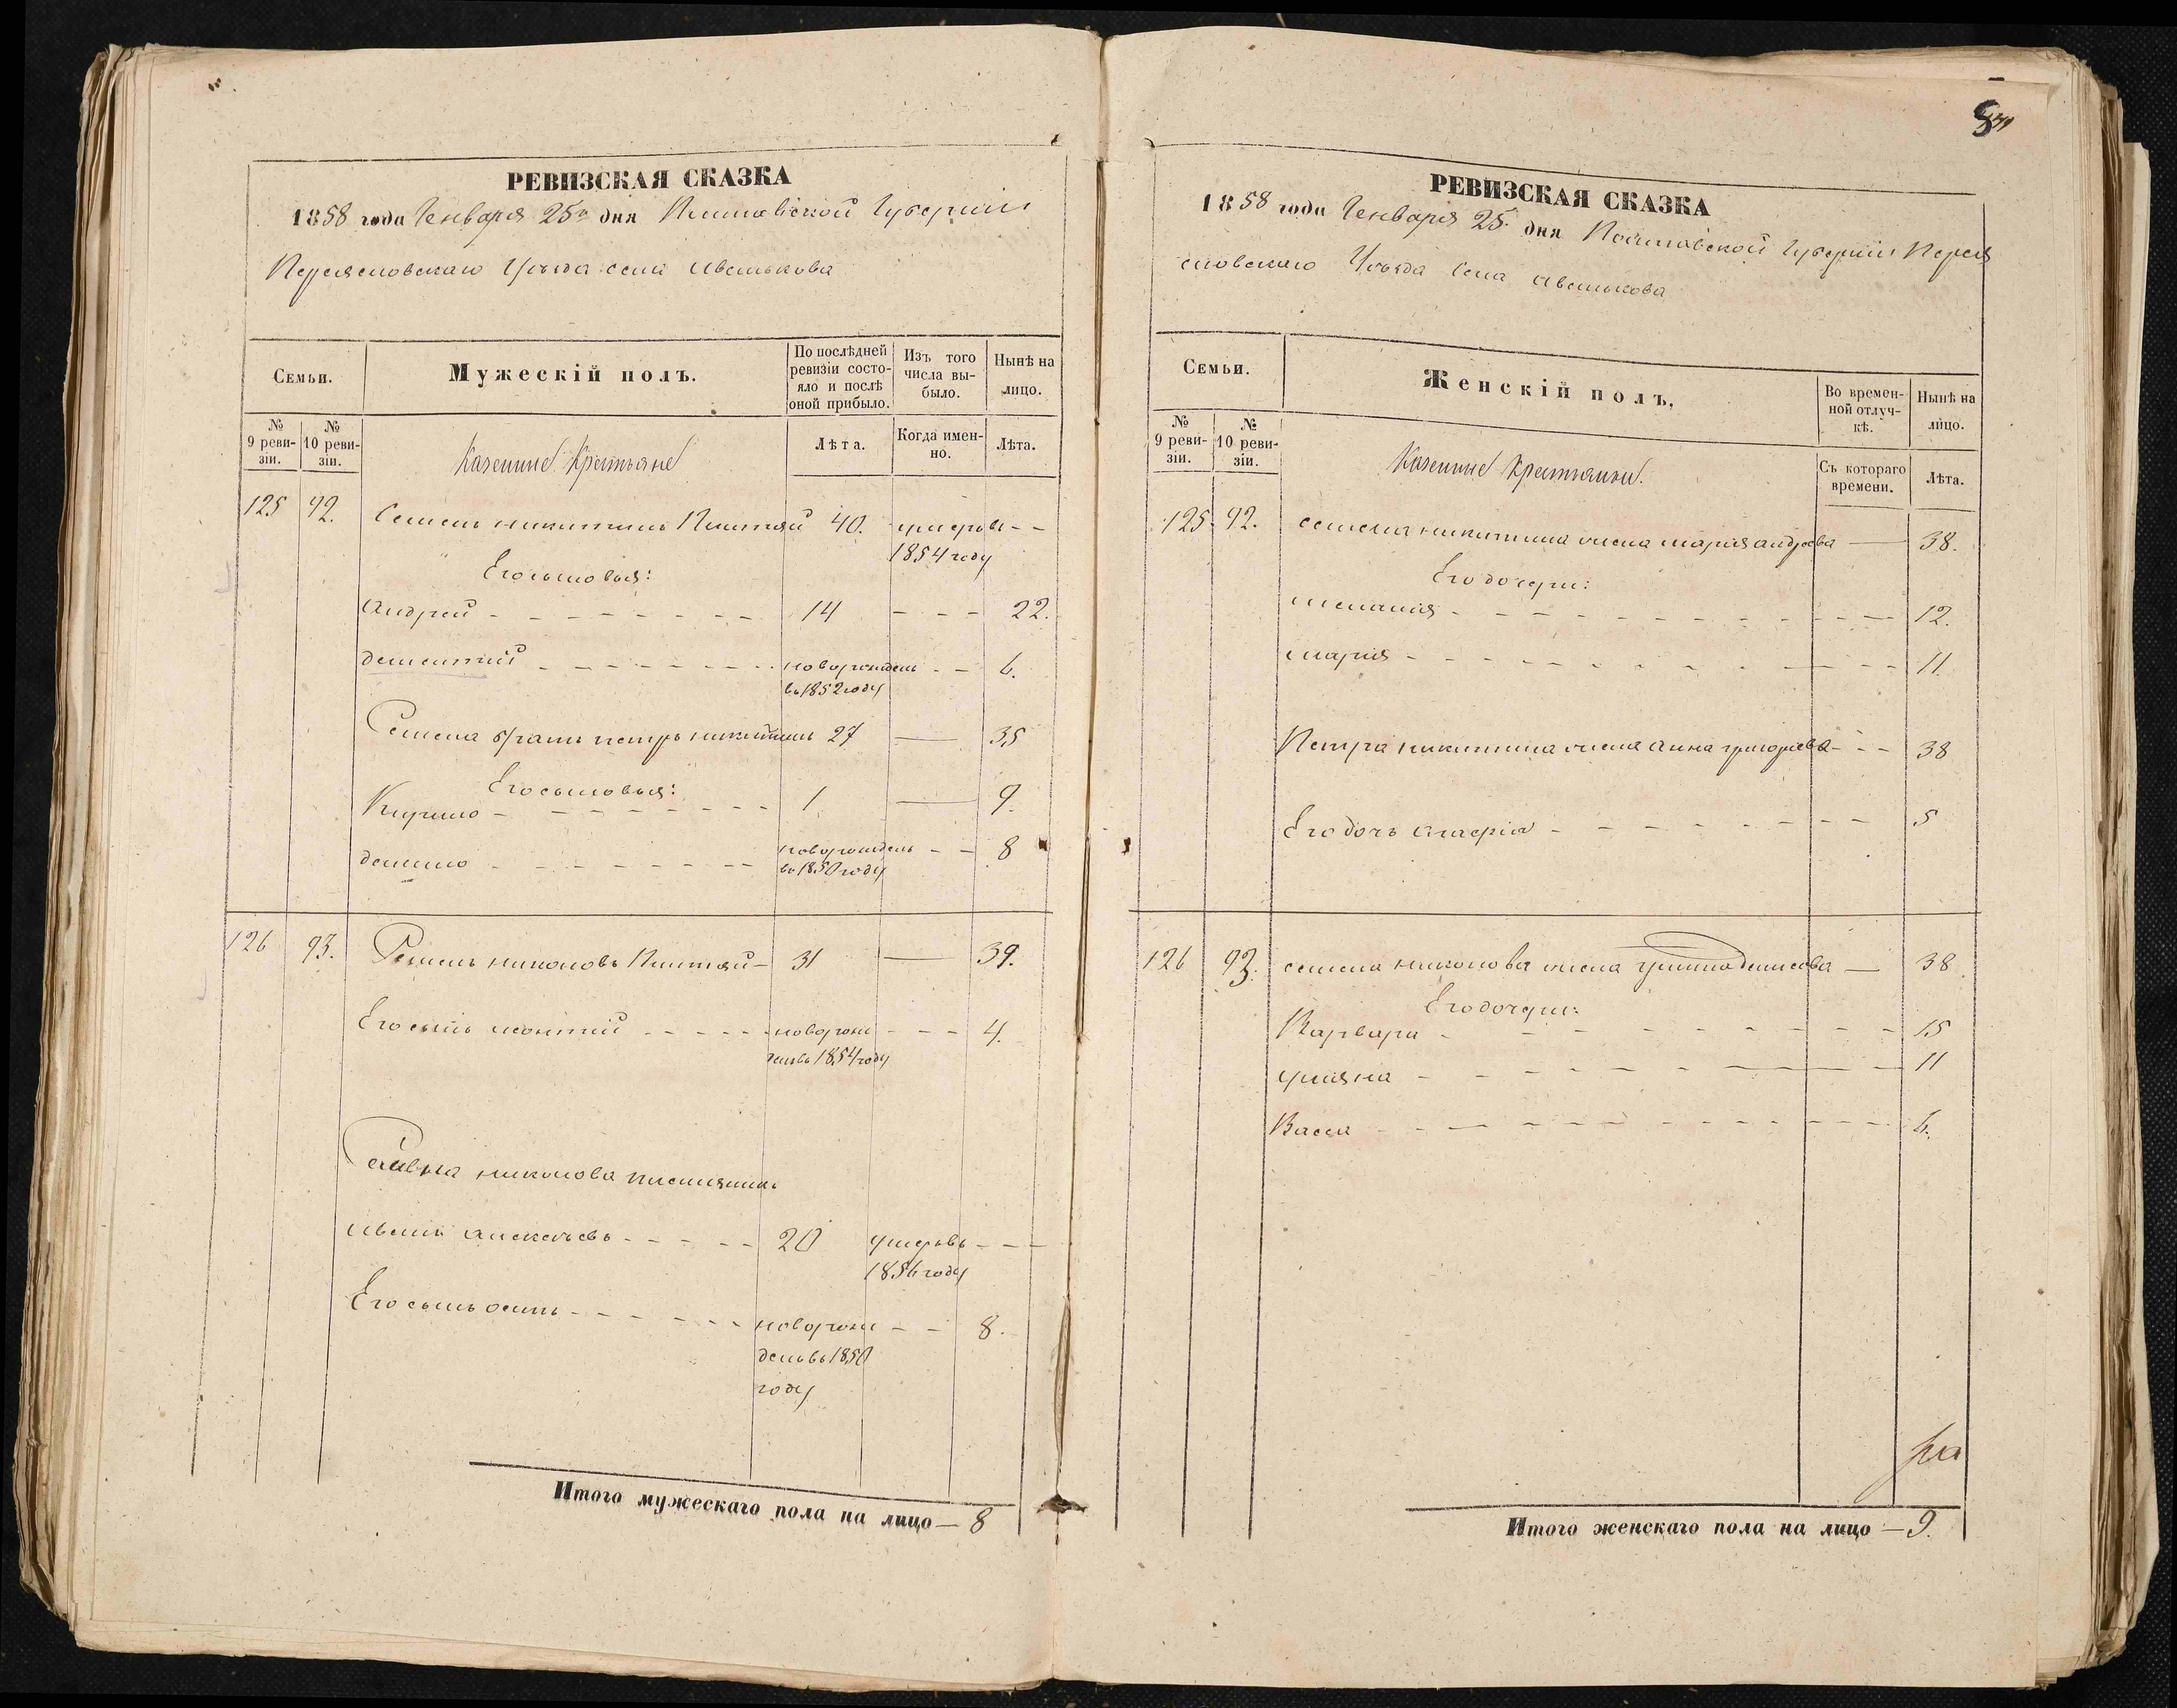 РЕВИЗСКАЯ СКАЗКА
1858 года Генваря 25го дня Полтавской Губернии
Переясловскаго Уезда села
Семьи.
Мужескій полъ.
По послѣдней ревизіи состояло и послѣ оной прибыло.
Изъ того числа выбыло.
Нынѣ на лицо.
№ 9 ревизіи.
№ 10 ревизіи.
Казенные Крестьяне
Лѣта.
Когда именно.
Лѣта.
125 92. Семенъ никитинъ 40. умеръ въ - -
1854 году
Его сыновья:
андрей - - - 14 - - - 22.
дементий - - - новорожденъ - - 6.
въ 1852 году
Семена братъ петръ никитинъ 27 — 35
Его сыновья:
Кирило - - - 1 — 9.
данило - - - новорожденъ - - 8
въ 1850 году
126 93. Семенъ никоновъ 31 — 39.
Его сынъ леонтий - - - новорож - - - 4.
денъ въ 1854 году
никонова племянникъ
иванъ алексеевъ - - - 20 умеръ въ - - -
1856 году
Его сынъ осипъ - - - новорож - - 8.
денъ въ 1850
году
Итого мужескаго пола на лицо — 8
РЕВИЗСКАЯ СКАЗКА
1858 года Генваря 25. дня Полтавской Губернии Перея
словскаго Уезда Села
Семьи.
Женскій полъ.
Во временной отлучкѣ.
Нынѣ на лицо.
№ 9 ревизіи.
№ 10 ревизіи.
Казенные Крестьянки.
Съ котораго времени.
Лѣта.
125. 92. семена никитина жена мария андреева — 38.
Его дочери:
мелания - - - 12.
мария - - - 11.
Петра никитина жена анна григориева - - - 38
Его дочь - - - 5
126 93. семена никонова жена — 38
Его дочери:
Варвара - - - 15
улияна - - - 11
Васса - - - 6.
Итого женскаго пола на лицо — 9.